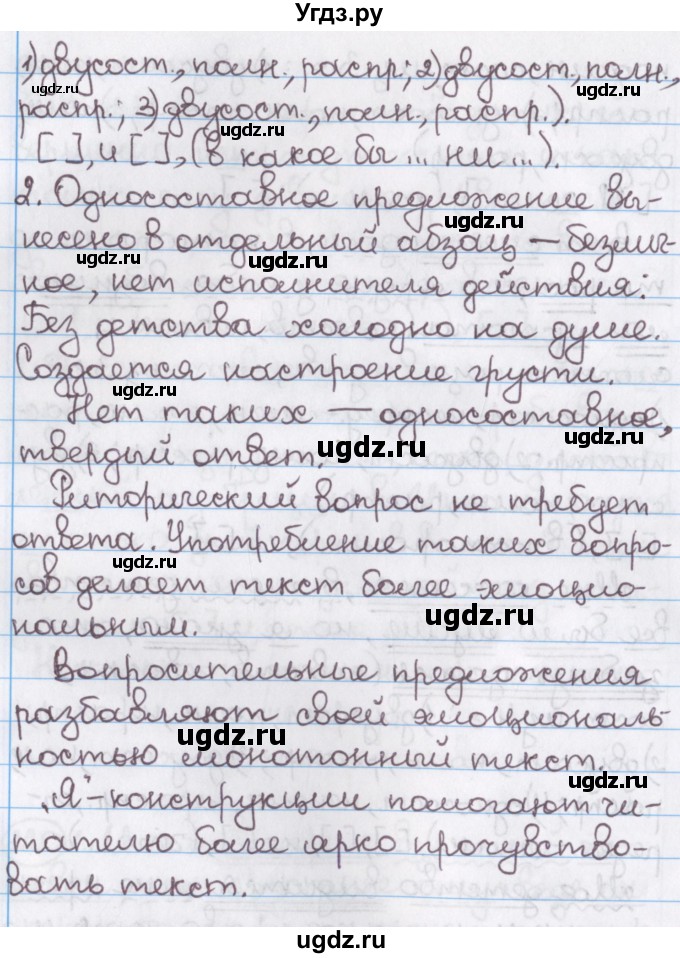 Угдз.ру
1) двусост., полн., распр.; 2) двусост., полн.,
распр.; 3) двусост., полн., распр.).
[ ], и [ ], (в какое бы ... ни ...).
2. Односоставное предложение вы-
несено в отдельный абзац – безлич-
ное, нет исполнителя действия:
Без детства холодно на душе.
Создается настроение грусти.
Нет таких – односоставное,
твердый ответ.
Риторический вопрос не требует
ответа. Употребление таких вопро-
сов делает текст более эмоцио-
нальным.
Вопросительные предложения
разбавляют своей эмоциональ-
ностью монотонный текст.
„Я“-конструкции помогают чи-
тателю более ярко прочувство-
вать текст.
ugdz.ru